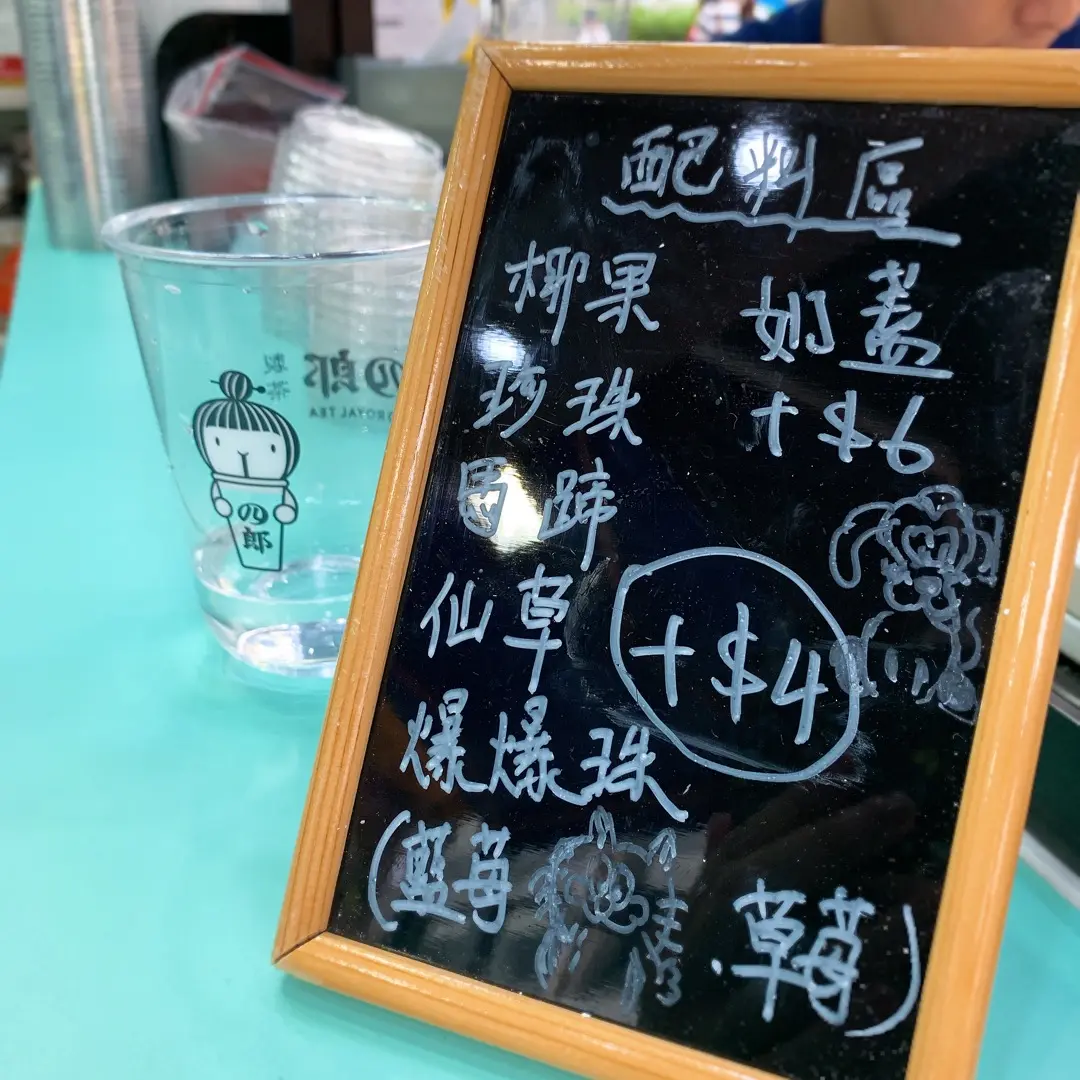 配料區
椰果
珍珠
馬蹄
仙草
爆爆珠
(藍莓 . 草莓)
奶蓋
+$6
+$4
四郎
製茶
四郎
ROYAL TEA